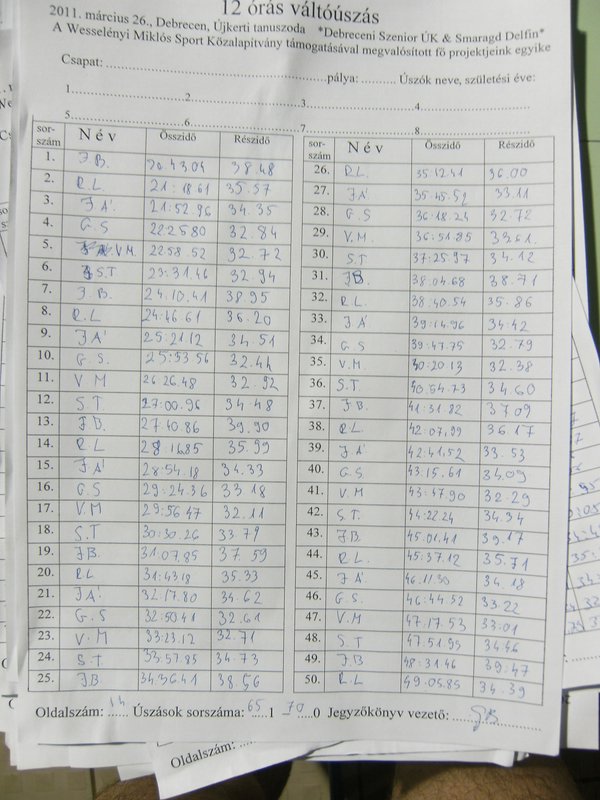 12 órás váltóúszás
2011. március 26., Debrecen, Újkerti tanuszoda *Debreceni Szenior ÚK & Smaragd Delfin*
A Wesselényi Miklós Sport Közalapítvány támogatásával megvalósított fő projektjeink egyike
Csapat: ........ pálya: ........ Úszók neve, születési éve:
1........2........3........4........
5........6........7........8........
sor-szám Név Összidő Részidő
1. J B. 20.43.04 38.48
2. R.L. 21:18.61 35.57
3. J Á. 21:52.96 34.35
4. G.S 22:25.80 32.84
5. V.M. 22:58.52 32.72
6. S.T 23:31.46 32.94
7. J.B. 24.10.41 38.95
8. R.L 24:46.61 36.20
9. J Á. 25:21.12 34.51
10. G.S. 25:53.56 32.44
11. V.M 26 26.48 32.92
12. S.T. 27:00.96 34.48
13. J.B. 27:40.86 39.90
14. R.L 28.16.85 35.99
15. J Á 28:54.18 34.33
16. G.S 29:24.36 33.18
17. V.M 29:56 47 32.11
18. S.T 30:30.26 33 79
19. J B. 31.07.85 37 59
20. R.L 31:43.18 35.33
21. J Á. 32.17.80 34.62
22. G.S 32:50.41 32.61
23. V.M 33:23.12 32.71
24. S.T 33:57.85 34.73
25. J B 34.36.41 38.56
sor-szám Név Összidő Részidő
26. R.L. 35.12.41 36.00
27. J Á. 35.45.52 33.11
28. G.S 36.18.24 32.72
29. V.M. 36:51.85 33.61
30. S.T 37:25.97 34.12
31. J B. 38:04.68 38.71
32. R.L. 38:40.54 35.86
33. J Á 39:14.96 34.42
34. G.S 39:47.75 32.79
35. V.M. 40:20.13 32.38
36. S.T. 40.54.73 34.60
37. J B. 41:31.82 37.09
38. R.L. 42:07.99 36.17
39. J Á. 42:41.52 33.53
40. G.S. 43:15.61 34.09
41. V.M 43:47.90 32.29
42. S.T. 44:22.24 34.34
43. J B. 45.01.41 39.17
44. R.L. 45:37.12 35.71
45. J Á. 46.11.30 34.18
46. G.S 46:44.52 33.22
47. V.M 47.17.53 33.01
48. S.T 47.51.99 34.46
49. J B 48:31.46 39.47
50. R.L 49.05.85 34.39
Oldalszám: 14 Úszások sorszáma: 65 1 – 70 0 Jegyzőkönyv vezető: JB
Oldalszám: ........